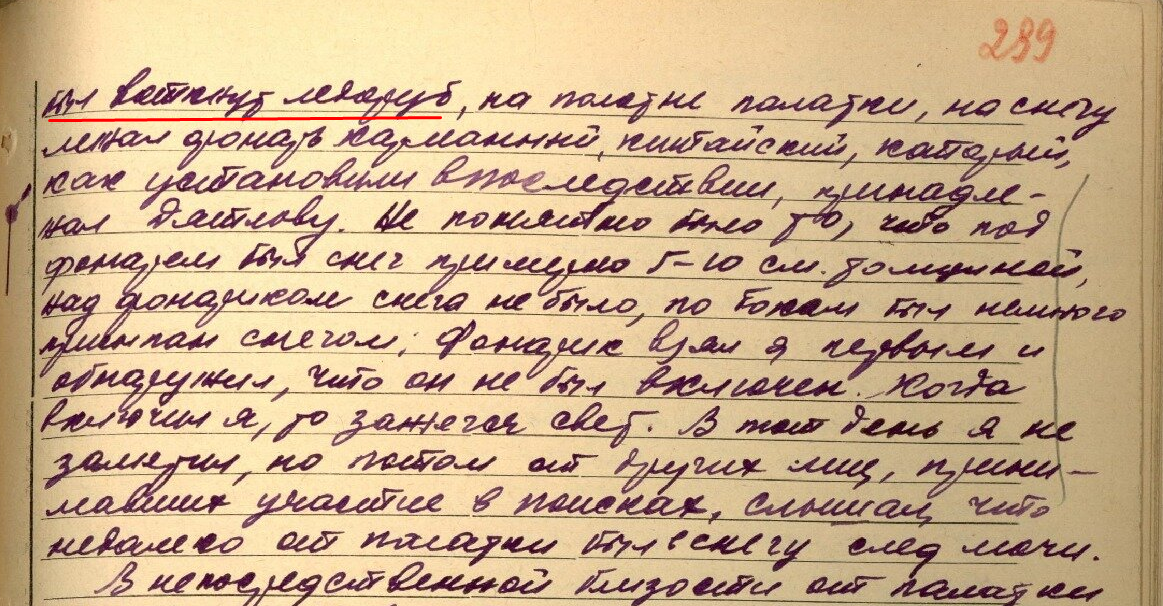 299
был воткнут ледоруб, на полотне палатки, на снегу
лежал фонарь карманный, китайский, который,
как установили впоследствии, принадле-
жал Дятлову. Не понятно было то, что под
фонарем был снег примерно 5-10 см. толщиной,
над фонариком снега не было, по бокам был немного
присыпан снегом. Фонарик взял я первым и
обнаружил, что он не был включен. Когда
включил я, то зажегся свет. В тот день я не
заметил, но потом от других лиц, прини-
мавших участие в поисках, слышал, что
недалеко от палатки был в снегу след мочи.
В непосредственной близости от палатки